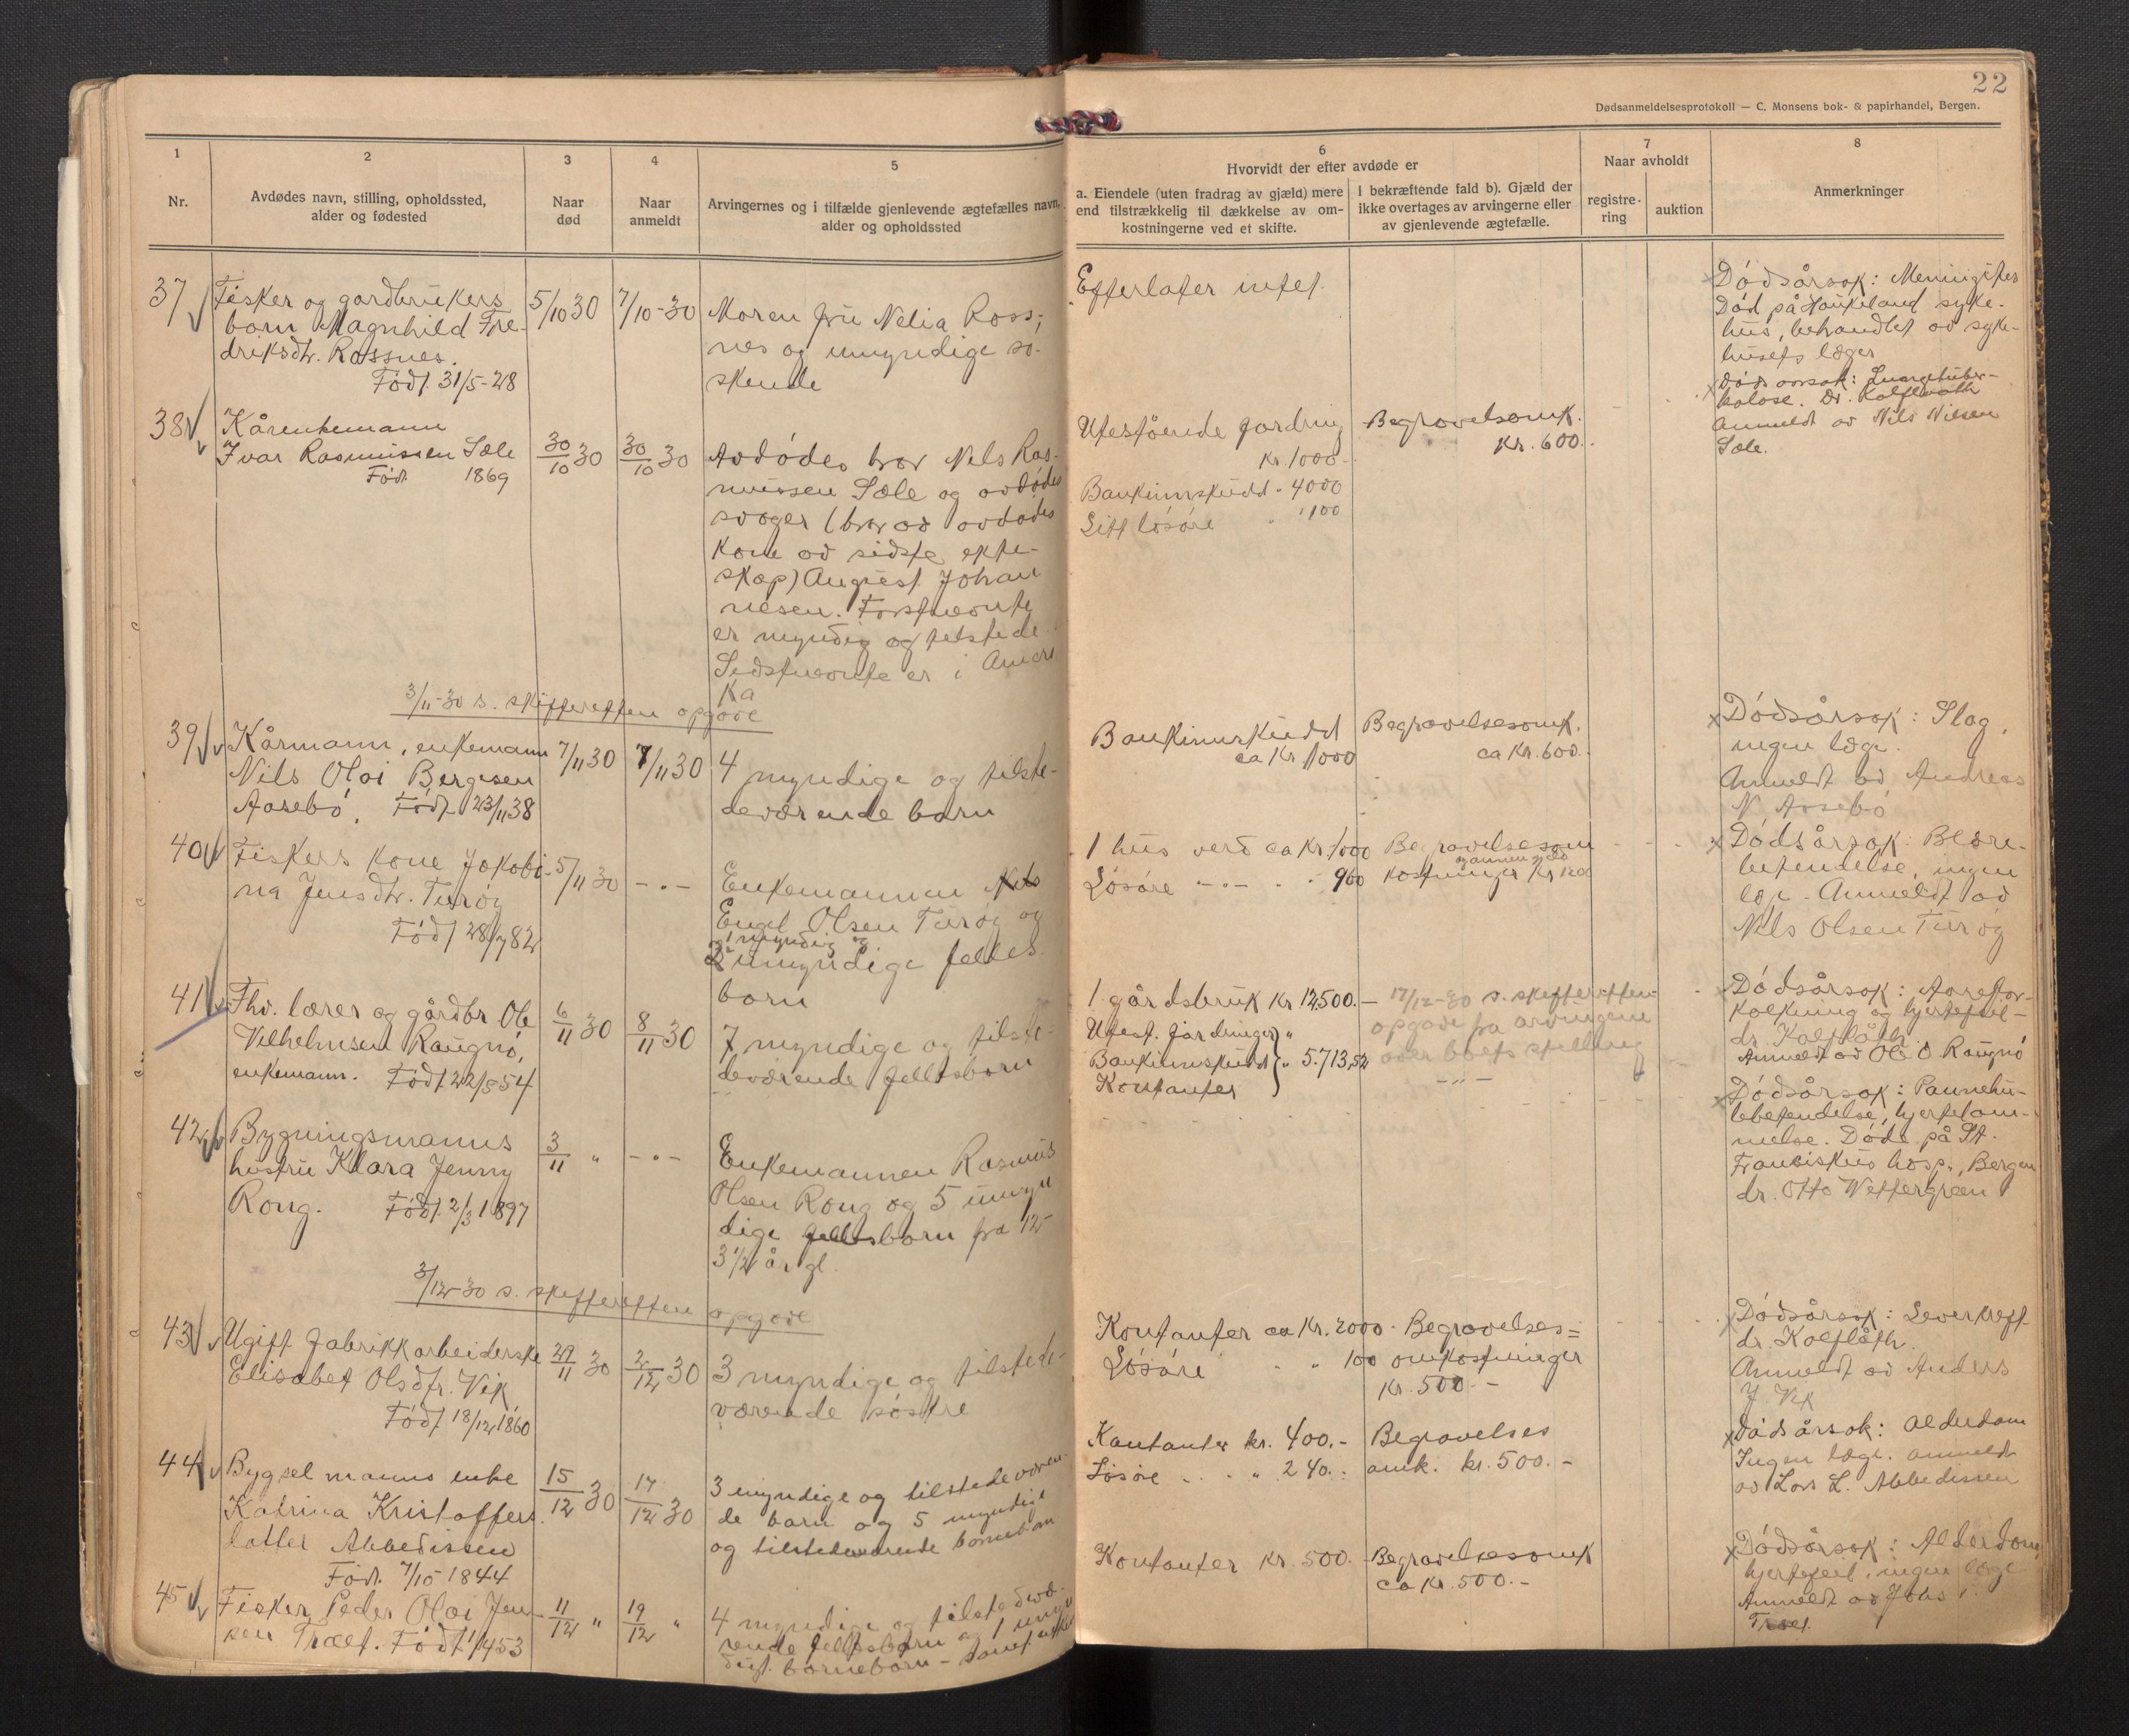 22
Dødsanmeldelsesprotokoll — C. Monsens bok- & papirhandel, Bergen.
1
Nr.
2
Avdødes navn, stilling, opholdssted,
alder og fødested
3
Naar
død
4
Naar
anmeldt
5
Arvingernes og i tilfælde gjenlevende ægtefælles navn,
alder og opholdssted
6
Hvorvidt der efter avdøde er
a. Eiendele (uten fradrag av gjæld) mere
end tilstrækkelig til dækkelse av om-
kostningerne ved et skifte.
I bekræftende fald b). Gjæld der
ikke overtages av arvingerne eller
av gjenlevende ægtefælle.
7
Naar avholdt
registre-
ring
auktion
8
Anmerkninger
37
Fisker og gardbrukers
barn Magnhild Fre-
driksdtr. Rossnes.
Født 31/5-28
5/10 30
7/10-30
Moren fru Nelia Ross-
nes og umyndige sø-
skende
Efterlater intet.
Dødsårsak:
Død på Haukeland syke-
hus, behandlet av syke-
husets læger
38
Kårenkemann
Ivar Rasmussen Sæle
Født 1869
30/10 30
30/10 30
Avdødes bror Nils Ras-
mussen Sæle og avdødes
svoger (bror av avdødes
kone av sidste ekte-
skap) August Johan
nesen. Førstnevnte
er myndig og tilstede
Sidstnevnte er i Ameri
ka
Utestående fordring
kr. 1000.-
Bankinnskudd " 4000
Litt løsøre " 100
Begravelsesomk.
kr. 600.-
Dødsårsak: Lungetuber-
kolose. Dr. Kalfláth
Anmeldt av Nils Nilsen
Sæle.
3/11-30 s. skifteretten opgave
39
Kårmann, enkemann
Nils Olai Bergesen
Aasebø. Født 23/11 38
7/11 30
7/11 30
4 myndige og tilste-
deværende barn
Bankinnskudd
ca kr. 1000
Begravelsesomk.
ca kr. 600.-
Dødsårsak: Slag,
ingen læge.
Anmeldt av Andreas
N. Aasebø
40
Fiskers kone Jakobi-
na Jensdtr. Turøy
Født 28/7 82
5/11 30
- " -
Enkemannen
Engel Olsen Turøy og
1 myndig og
umyndige felles
barn
1 hus verd ca kr. 1000
Løsøre - " - " 900
Begravelsesom
og annen gjeld
kostninger kr
Dødsårsak: Blære-
betendelse, ingen
læge. Anmeldt av
Nils Olsen Turøy
41
Fhv. lærer og gårdbr Ole
Vilhelmsen Raugnø,
enkemann. Født 22/5-54
6/11 30
8/11 30
7 myndige og tilste-
deværende fellesbarn
1 gårdsbruk kr 12,500.-
Utest. fordringer "
Bankinnskudd " 5.713,52
Kontanter
17/12-30 s. skifteretten
opgave fra arvingene
over boets stilling
- " -
Dødsårsak: Aarefor-
kalkning og hjertefeil-
dr. Kalflåth.
Anmeldt av Ole O. Raugnø
42
Bygningsmanns
hustru Klara Jenny
Rong. Født 2/3 1897
3/11 "
- " -
Enkemannen Rasmus
Olsen Rong og 5 umyn
dige fellesbarn fra 12-
3 1/2 år gl.
Dødsårsak: Pannehu-
lebetendelse, hjertelam-
melse. Døde på St.
Franciskus hosp., Bergen
dr. Otto Wettergren
3/12-30 s. skifteretten opgave
43
Ugift fabrikkarbeiderske
Elisabet Olsdtr. Vik
Født 18/12 1860
29/11 30
2/12 30
3 myndige og tilstede-
værende søstre
Kontanter ca kr. 2000.
Løsøre " " 100
Begravelses=
omkostninger
kr. 500.-
Dødsårsak: Leverkreft
dr. Kalflåth.
Anmeldt av Anders
J. Vik
44
Bygselmanns enke
Katrina Kristoffers
datter Abbedissen
Født. 7/10 1844
15/12 30
17/12 30
3 myndige og tilstedeværen-
de barn og 5 myndige
og tilstedeværende barnebarn
Kontanter kr. 400.-
Løsøre " 240.-
Begravelses
omk. kr. 500.-
Dødsårsak: Alderdom
Ingen læge. Anmeldt
av Lars L. Abbedissen
45
Fisker Peder Olai Jen-
sen Træet. Født 1/4 53
11/12 "
19/12 "
4 myndige og tilstedevæ-
rende fellesbarn og 1 umyn
digt barnebarn -
Kontanter kr. 500.-
Begravelsesomk
ca kr. 500.-
Dødsårsak: Alderdom,
hjertefeil, ingen læge
Anmeldt av Jens P.
Træet.